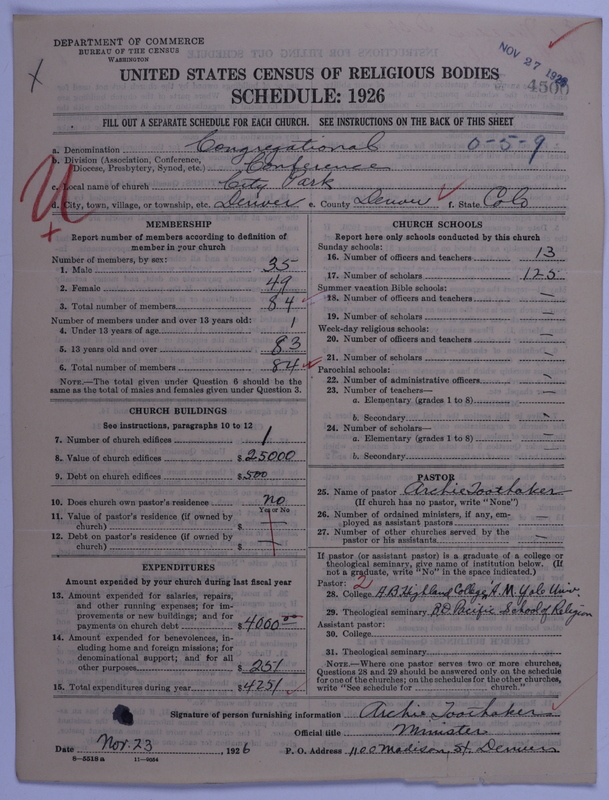 DEPARTMENT OF COMMERCE
BUREAU OF THE CENSUS
WASHINGTON
NOV 27 1926
4500
UNITED STATES CENSUS OF RELIGIOUS BODIES
SCHEDULE: 1926
FILL OUT A SEPARATE SCHEDULE FOR EACH CHURCH. SEE INSTRUCTIONS ON THE BACK OF THIS SHEET
a. Denomination Congregational 0-5-9
b. Division (Association, Conference, Diocese, Presbytery, Synod, etc.) Conference
c. Local name of church City Park
d. City, town, village, or township, etc. Denver e. County Denver f. State Colo
MEMBERSHIP
Report number of members according to definition of
member in your church
Number of members, by sex:
1. Male 35
2. Female 49
3. Total number of members 84
Number of members under and over 13 years old:
4. Under 13 years of age 1
5. 13 years old and over 83
6. Total number of members 84
NOTE.—The total given under Question 6 should be the
same as the total of males and females given under Question 3.
CHURCH BUILDINGS
See instructions, paragraphs 10 to 12
7. Number of church edifices 1
8. Value of church edifices $25000
9. Debt on church edifices $500
10. Does church own pastor's residence? no
Yes or No
11. Value of pastor's residence (if owned by
church) $ —
12. Debt on pastor's residence (if owned by
church) $ —
EXPENDITURES
Amount expended by your church during last fiscal year
13. Amount expended for salaries, repairs,
and other running expenses; for im-
provements or new buildings; and for
payments on church debt $4000 00
14. Amount expended for benevolences, in-
cluding home and foreign missions; for
denominational support; and for all
other purposes $251
15. Total expenditures during year $4251
CHURCH SCHOOLS
Report here only schools conducted by this church
Sunday schools:
16. Number of officers and teachers 13
17. Number of scholars 125
Summer vacation Bible schools:
18. Number of officers and teachers —
19. Number of scholars —
Week-day religious schools:
20. Number of officers and teachers —
21. Number of scholars —
Parochial schools:
22. Number of administrative officers —
23. Number of teachers—
a. Elementary (grades 1 to 8) —
b. Secondary —
24. Number of scholars—
a. Elementary (grades 1 to 8) —
b. Secondary —
PASTOR
25. Name of pastor Archie Toothaker
(If church has no pastor, write "None")
26. Number of ordained ministers, if any, em-
ployed as assistant pastors —
27. Number of other churches served by the
pastor or his assistants —
If pastor (or assistant pastor) is a graduate of a college or
theological seminary, give name of institution below. (If
not a graduate, write "No" in the space indicated.)
Pastor: 2
28. College A.B. Highland College, A.M. Yale Univ.
29. Theological seminary B.D. Pacific School of Religion
Assistant pastor:
30. College
31. Theological seminary
NOTE.—Where one pastor serves two or more churches,
Questions 28 and 29 should be answered only on the schedule
for one of the churches; on the schedules for the other churches,
write "See schedule for church."
Signature of person furnishing information Archie Toothaker
Official title Minister
Date Nov. 23, 1926 P. O. Address 1100 Madison, St. Denver
8—5518 a 11—9034